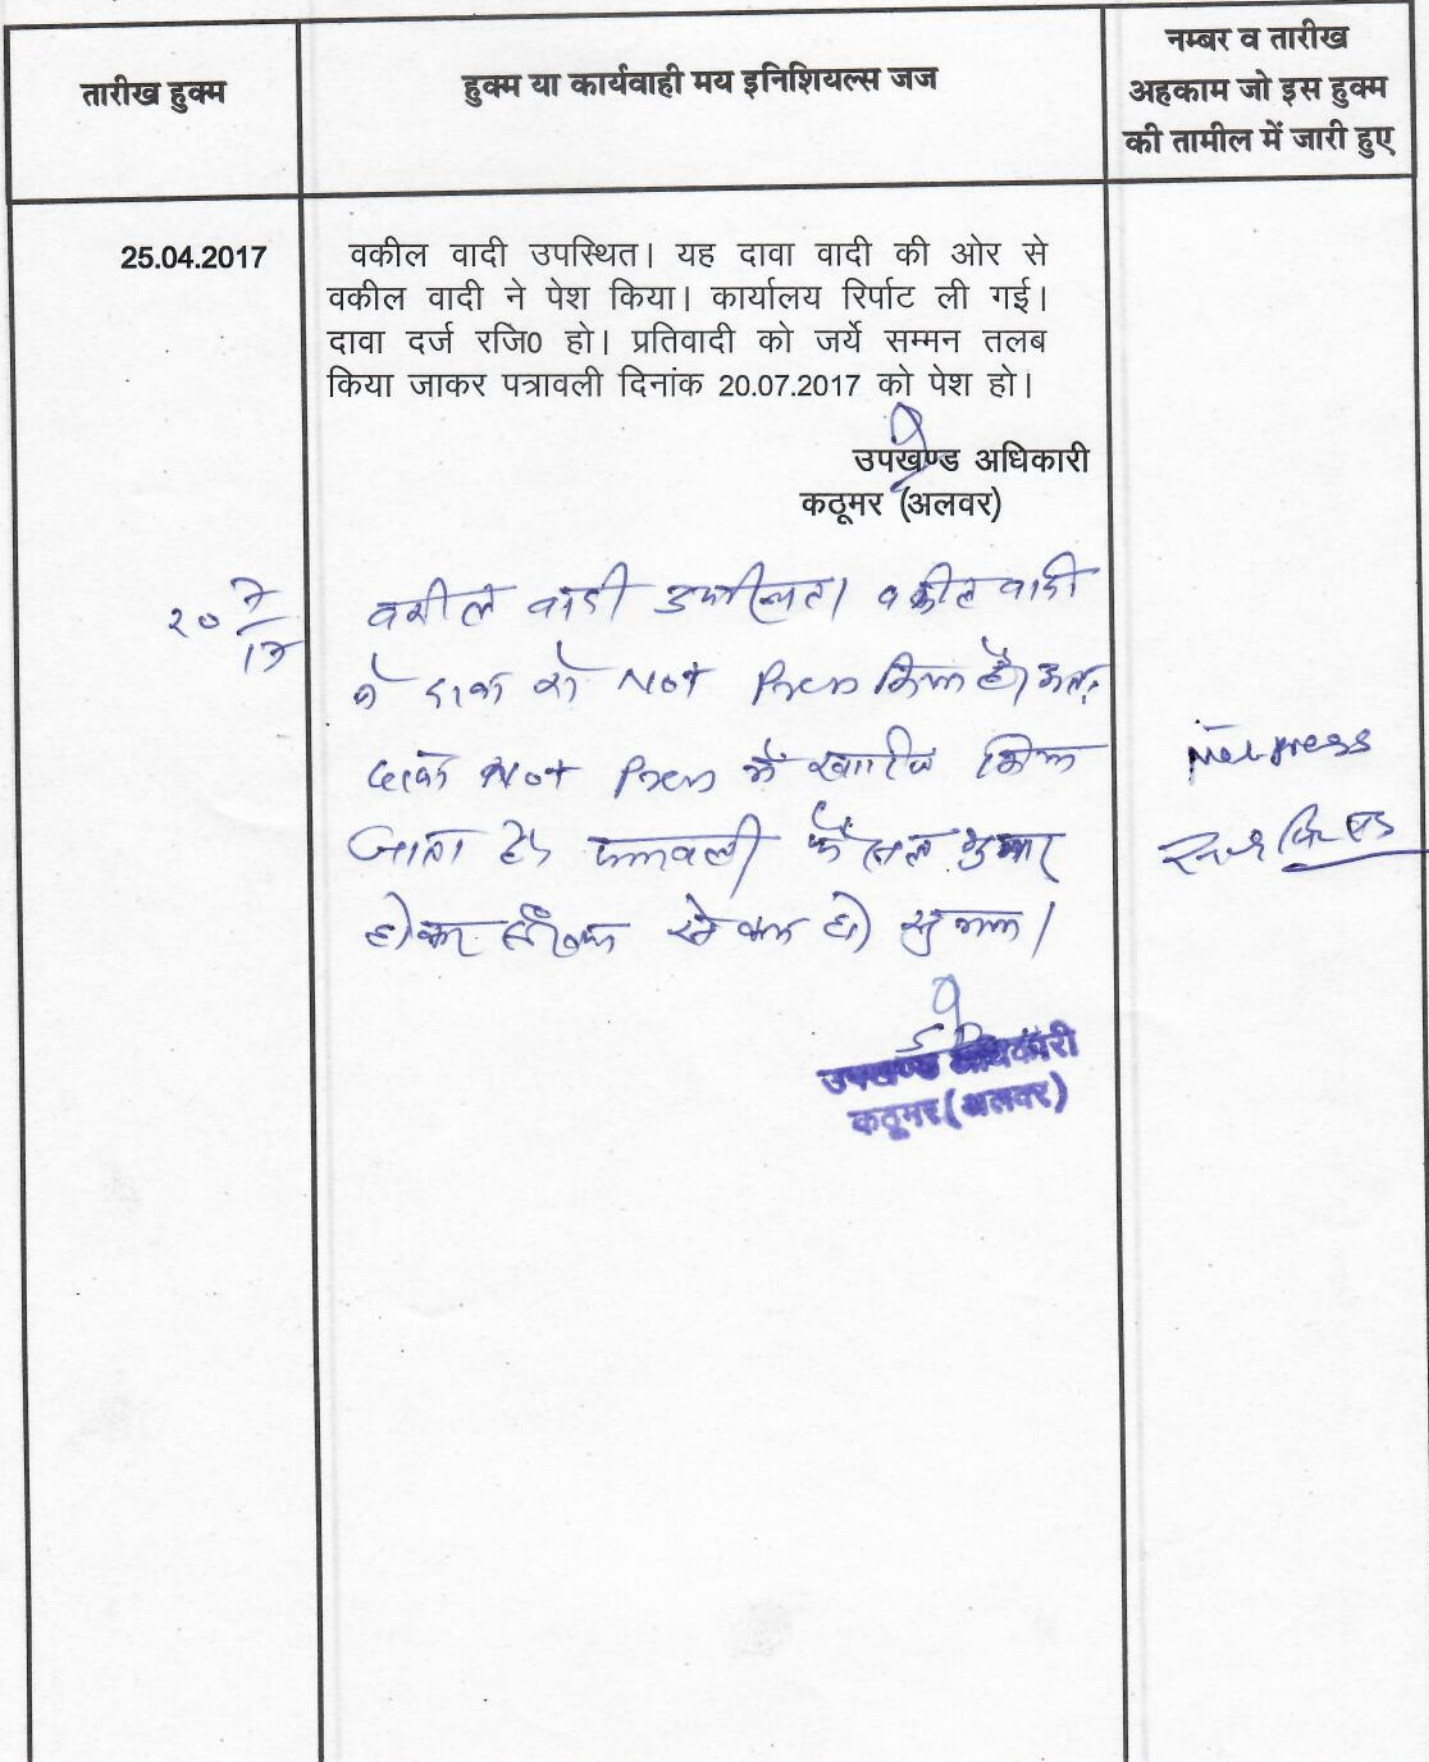 तारीख हुक्म
हुक्म या कार्यवाही मय इनिशियल्स जज
नम्बर व तारीख
अहकाम जो इस हुक्म
की तामील में जारी हुए
25.04.2017
वकील वादी उपस्थित। यह दावा वादी की ओर से
वकील वादी ने पेश किया। कार्यालय रिर्पाट ली गई।
दावा दर्ज रजि0 हो। प्रतिवादी को जर्ये सम्मन तलब
किया जाकर पत्रावली दिनांक 20.07.2017 को पेश हो।
उपखण्ड अधिकारी
कठूमर (अलवर)
२० 7/17
वकील वादी उपस्थित। वकील वादी
ने दावा को Not Press किया है। अतः
दावा Not Press में खारीज किया
जाता है। पत्रावली फैसल शुमार
होकर दाखिल हो।
उपखण्ड अधिकारी
कठूमर (अलवर)
Not press